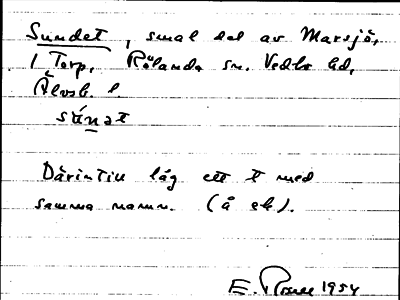 Sundet, smal del av Marsjö,
1 Torp, Rölanda sn. Vedbo hd,
Älvsb. l.
súnət
Därintill låg ett t med
samma namn. (å ek).
E. 1954